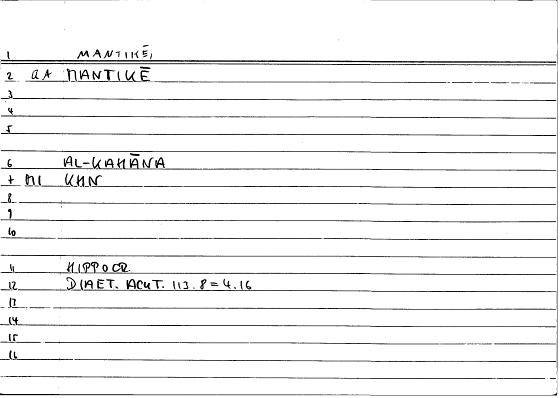 1 MANTIKĒ,
2 aA MANTIKĒ
3
4
5
6 AL-KAHĀNA
7 MI KHN
8
9
10
11 HIPPOCR.
12 DIAET. ACUT. 113.8 = 4.16
13
14
15
16